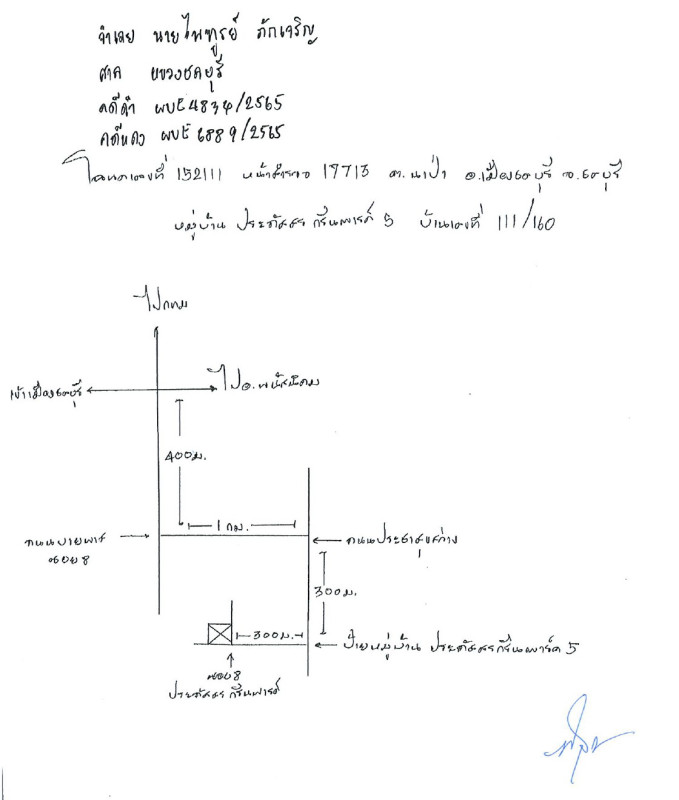 จำเลย นายไพฑูรย์ ภักเจริญ
ศาล แขวงชลบุรี
คดีดำ ผบE4834/2565
คดีแดง ผบE 6889/2565
โฉนดเลขที่ 152111 หน้าสำรวจ 17713 ต.นาป่า อ.เมืองชลบุรี จ.ชลบุรี
หมู่บ้าน ประภัสสร กรีนพาร์ค 5 บ้านเลขที่ 111/160
ไปกทม
เข้าเมืองชลบุรี
ไปอ.พนัสนิคม
400ม.
1 กม.
ถนนบายพาส
ซอย 8
ถนนประชาสุขสว่าง
300ม.
300ม.
ป้ายหมู่บ้าน ประภัสสรกรีนพาร์ค 5
ซอย8
ประภัสสร กรีนพาร์ค